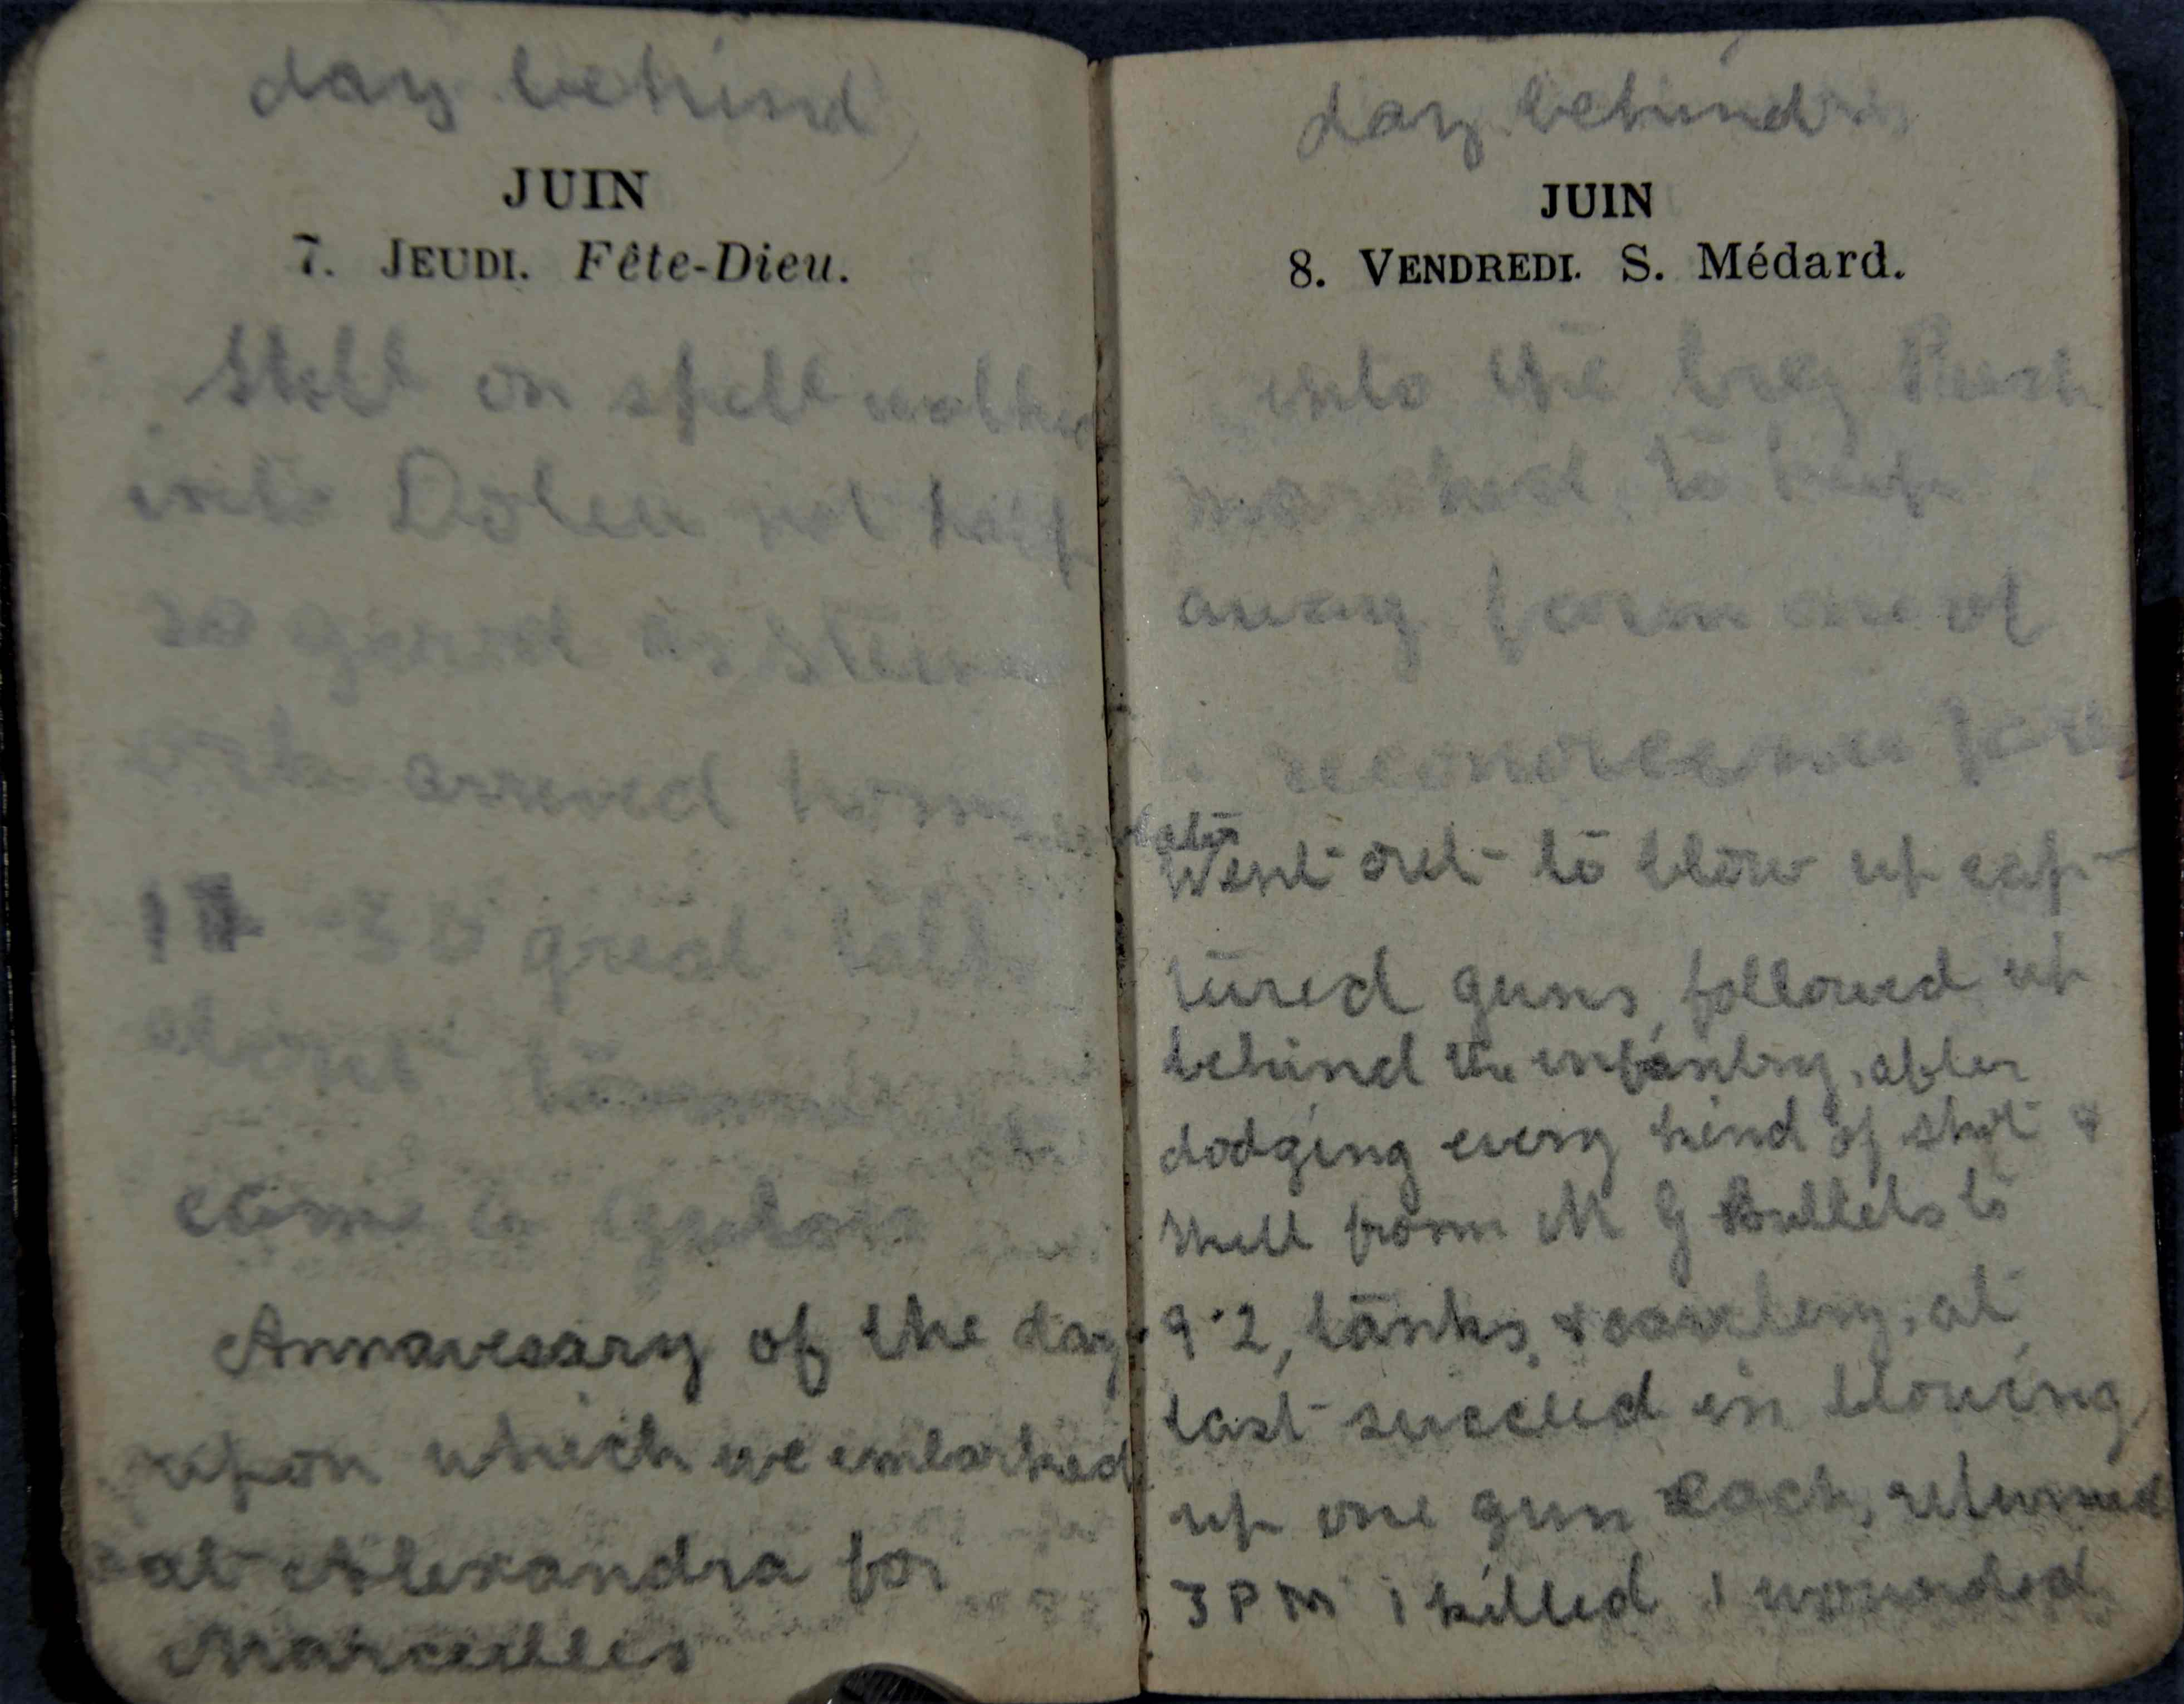 day behind
JUIN
7. JEUDI. Fête-Dieu.
Still on spell walked
into not half
so good as
arrived home
30 great talk
about
come to
Annavesary of the day
upon which we embarked
at Alexandra for
Marceilles
day behind
JUIN
8. VENDREDI. S. Médard.
into the big Push
marched to keep
away form one of
Went out to blow up cap-
tured guns, followed up
behind the infantry, after
dodging every kind of shot &
shell from M G Bullets to
9.2, tanks, & at
last succeed in blowing
up one gun each, returned
3 PM 1 killed 1 wounded